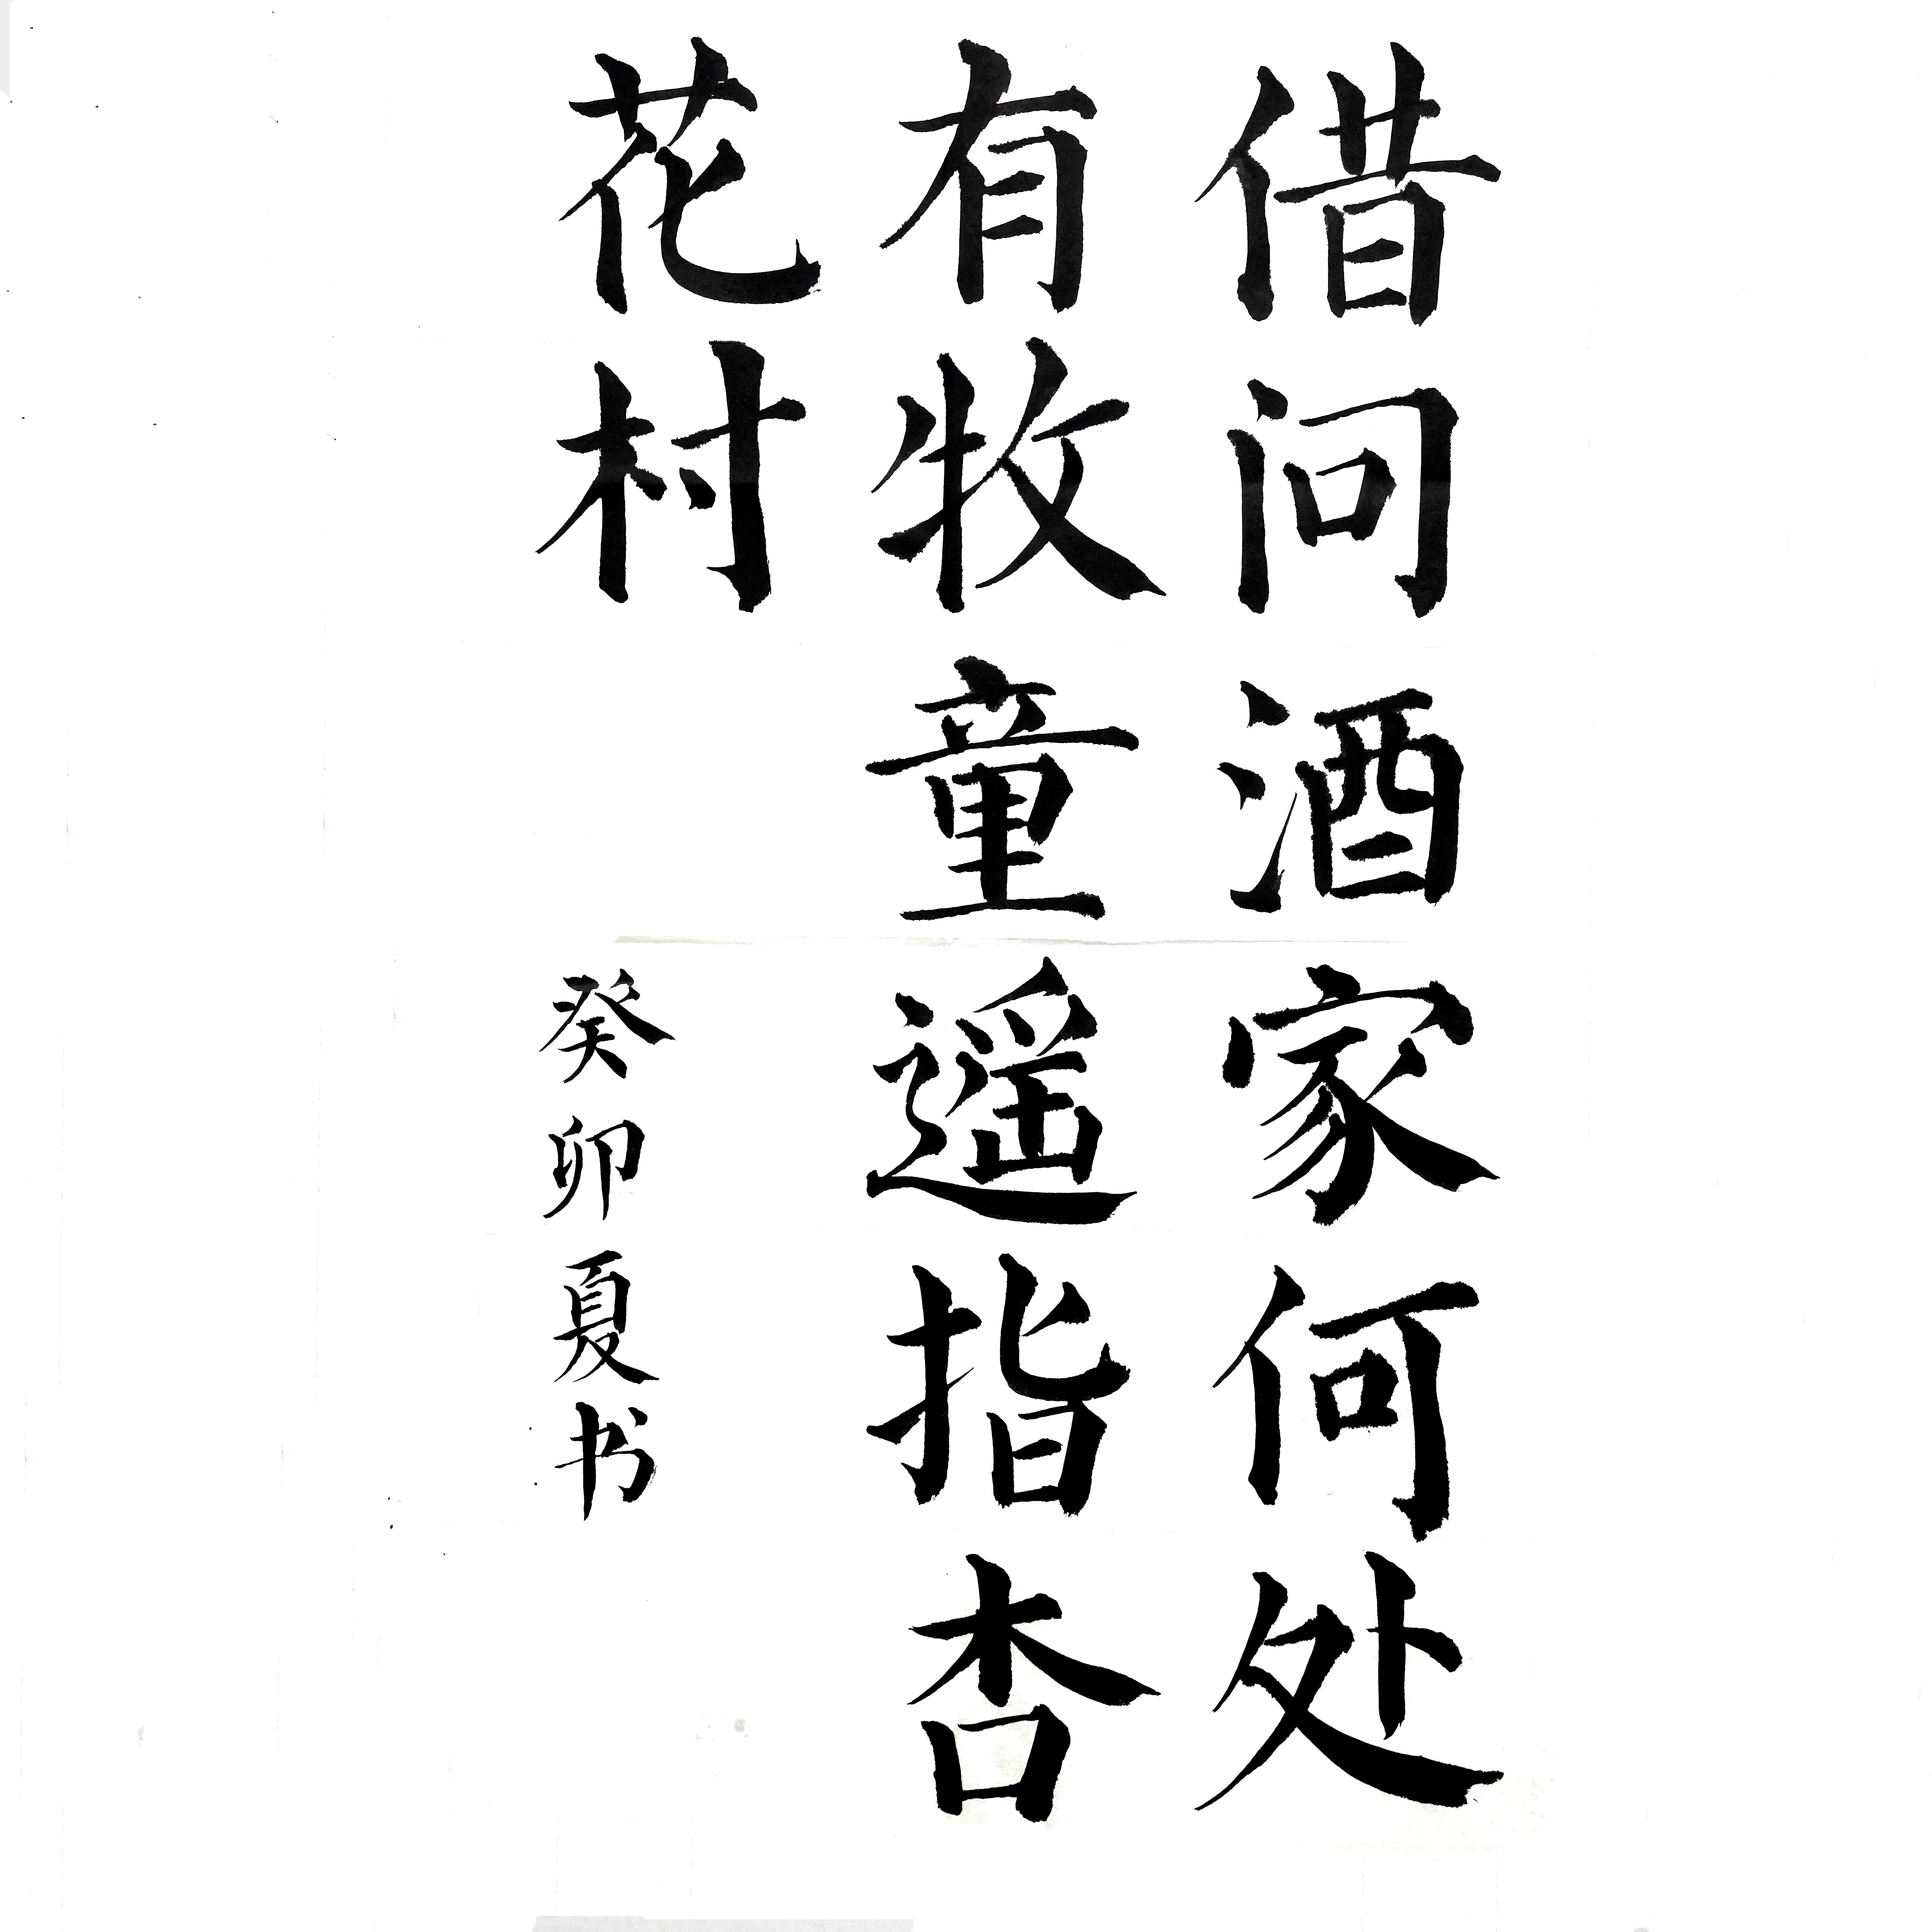 借问酒家何处
有牧童遥指杏
花村
癸卯夏书